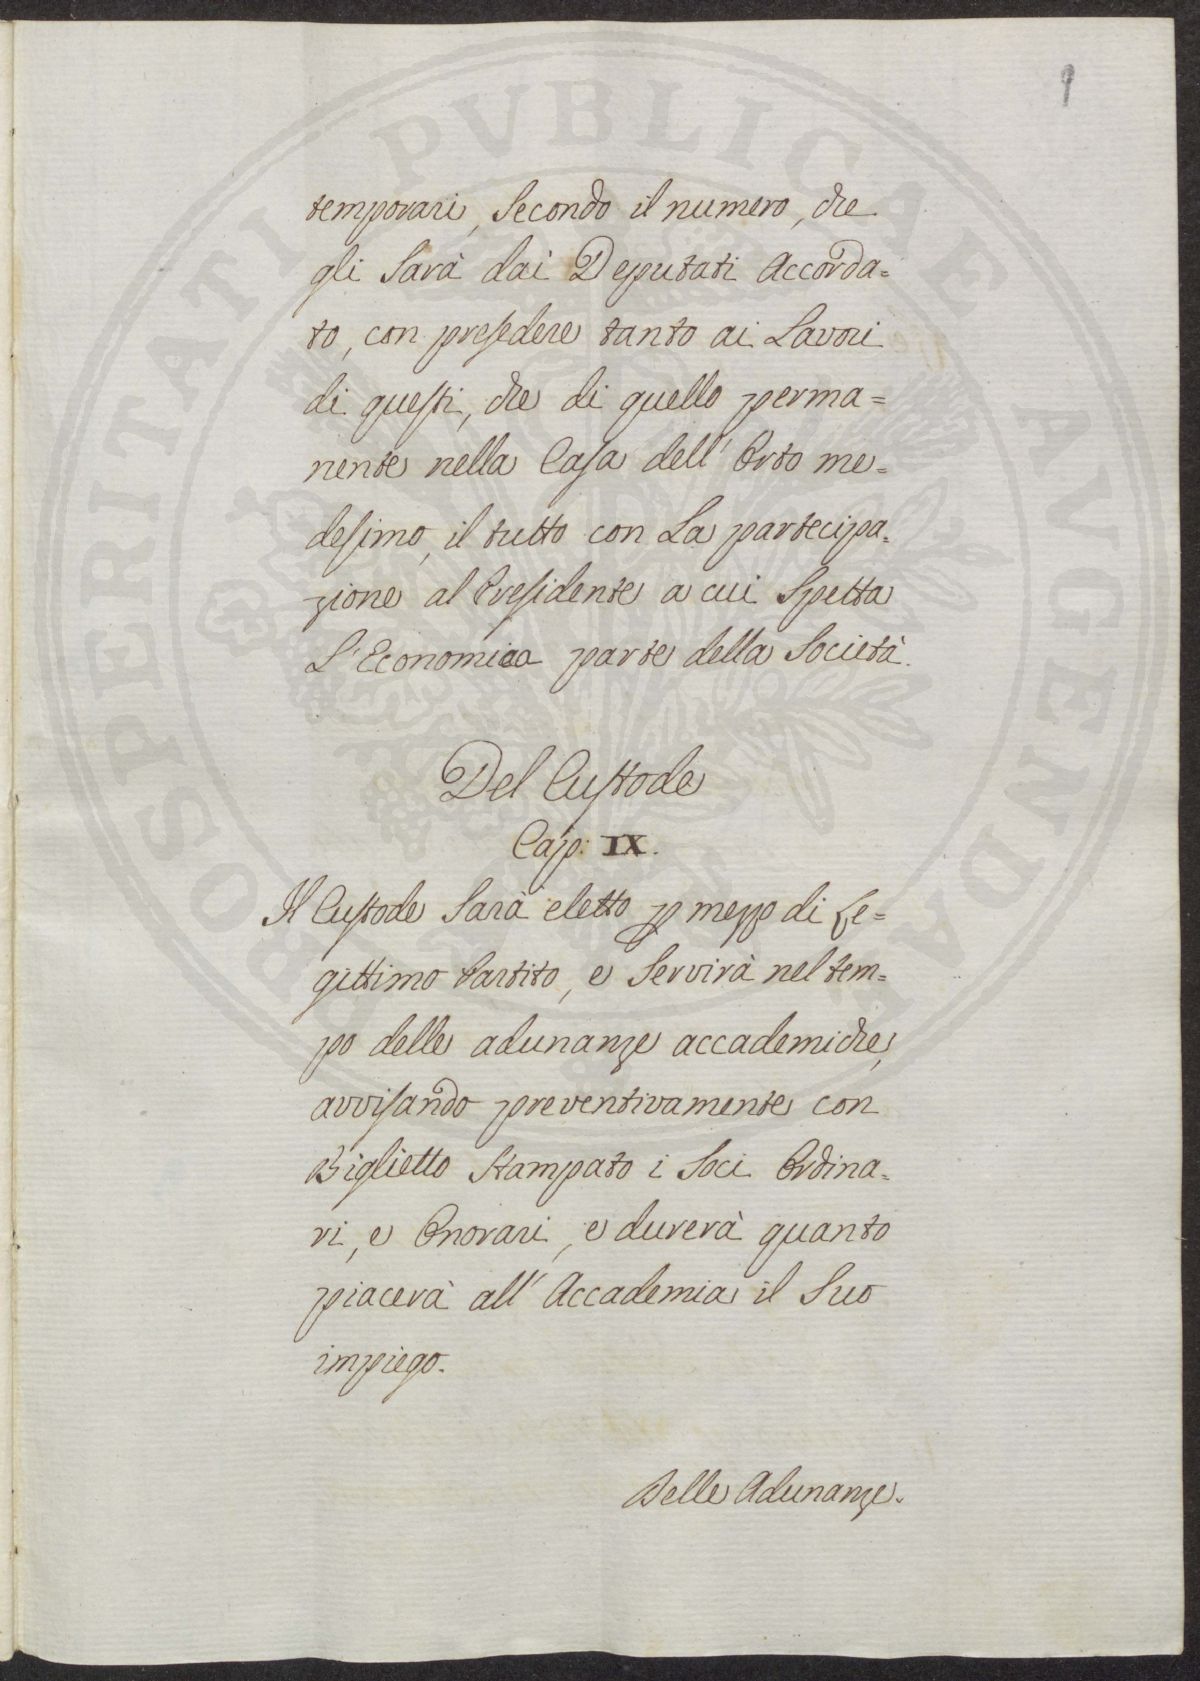 9
temporari, Secondo il numero, che
gli Sarà dai Deputati Accorda=
to, con presedere tanto ai Lavori
di questi, che di quello perma=
nente nella Casa dell' Orto me=
desimo, il tutto con La partecipa=
zione al Presidente a cui Spetta
L'Economica parte della Società.
Del Custode
Cap: IX.
Il Custode Sarà eletto p mezzo di Le=
gittimo Partito, e Servirà nel tem=
po delle adunanze accademiche,
avvisando preventivamente con
Biglietto Stampato i Soci Ordina=
ri, e Onorari, e durerà quanto
piacerà all' Accademia il Suo
impiego.
Delle Adunanze.
PROSPERITATI PVBLICAE AVGENDAE